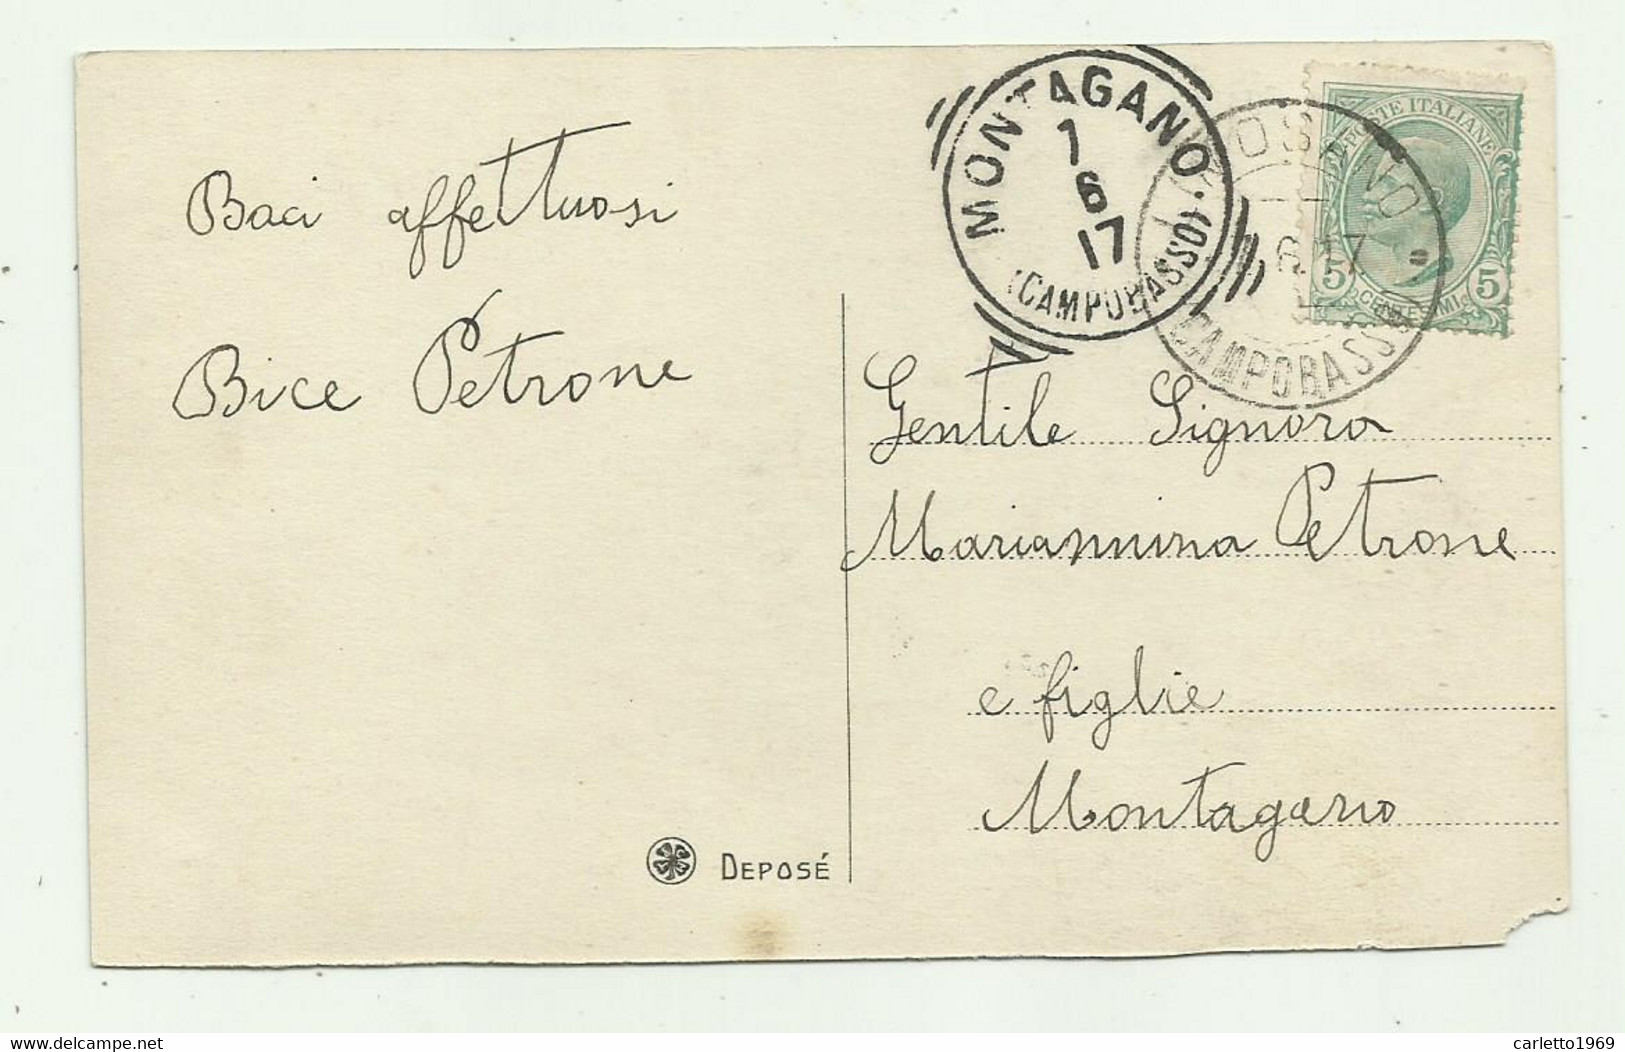 Baci affettuosi
Bice Petrone
DEPOSÉ
MONTAGANO
7
6
17
(CAMPOBASSO)
CAMPOBASSO
POSTE ITALIANE
5 CENTESIMI 5
Gentile Signora
Mariannina Petrone
e figlie
Montagano
delcampe.net
carletto1969